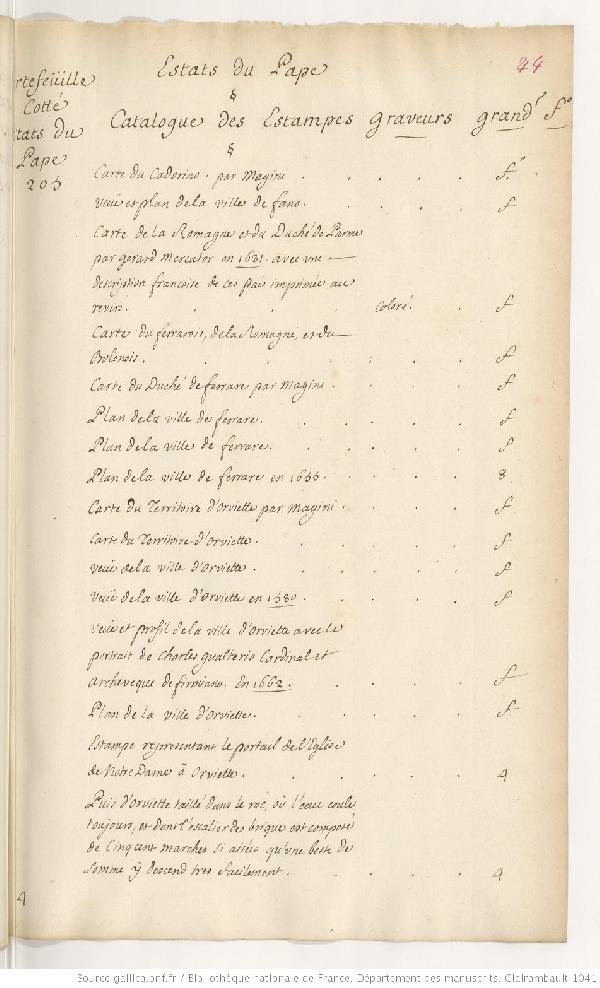 Estats du Pape
44
§
rtefeüille
Cotté
tats du
Pape
203
Catalogue des Estampes graveurs grandr fo
§
Carte du Cadorino. par Magini . . . . . f.o
veüe et plan de la ville de fano. . . . . f
Carte de la Romagne et du Duché de Parme
par gerard mercator en 1621. avec une
description francoise de ces païs imprimée au
revers. . . . coloré. . f
Carte du ferrarois, de la Romagne, et du
Bolonois. . . . . . f
Carte du Duché de ferrare par magini . . . . f
Plan de la ville de ferrare. . . . . f
Plan de la ville de ferrare. . . . . f
Plan de la ville de ferrare en . . . . 8
Carte du Territoire d'orviette par magini . . . . f
Carte du Territoire d'orviette. . . . . f
veüe de la ville d'orviette. . . . . f
veüe de la ville d'orviette en 1580. . . . . f
veüe et profil de la ville d'orviette avec le
portrait de Charles gualterio Cardinal et
archeveque de en 1662. . . . f
Plan de la ville d'orviette. . . . . f
Estampe representant le portail de l'Eglise
de Notre Dame à orviette. . . . . 4
Puis d'orviette taillé dans le roc, où l'eau coule
toujours, et dont l'escalier de brique est composé
de Cinq cent marches si aisées qu'une beste de
somme y descend tres facilement. . . . . 4
4
Source gallica.bnf.fr / Bibliothèque nationale de France. Département des manuscrits. Clairambault 1041